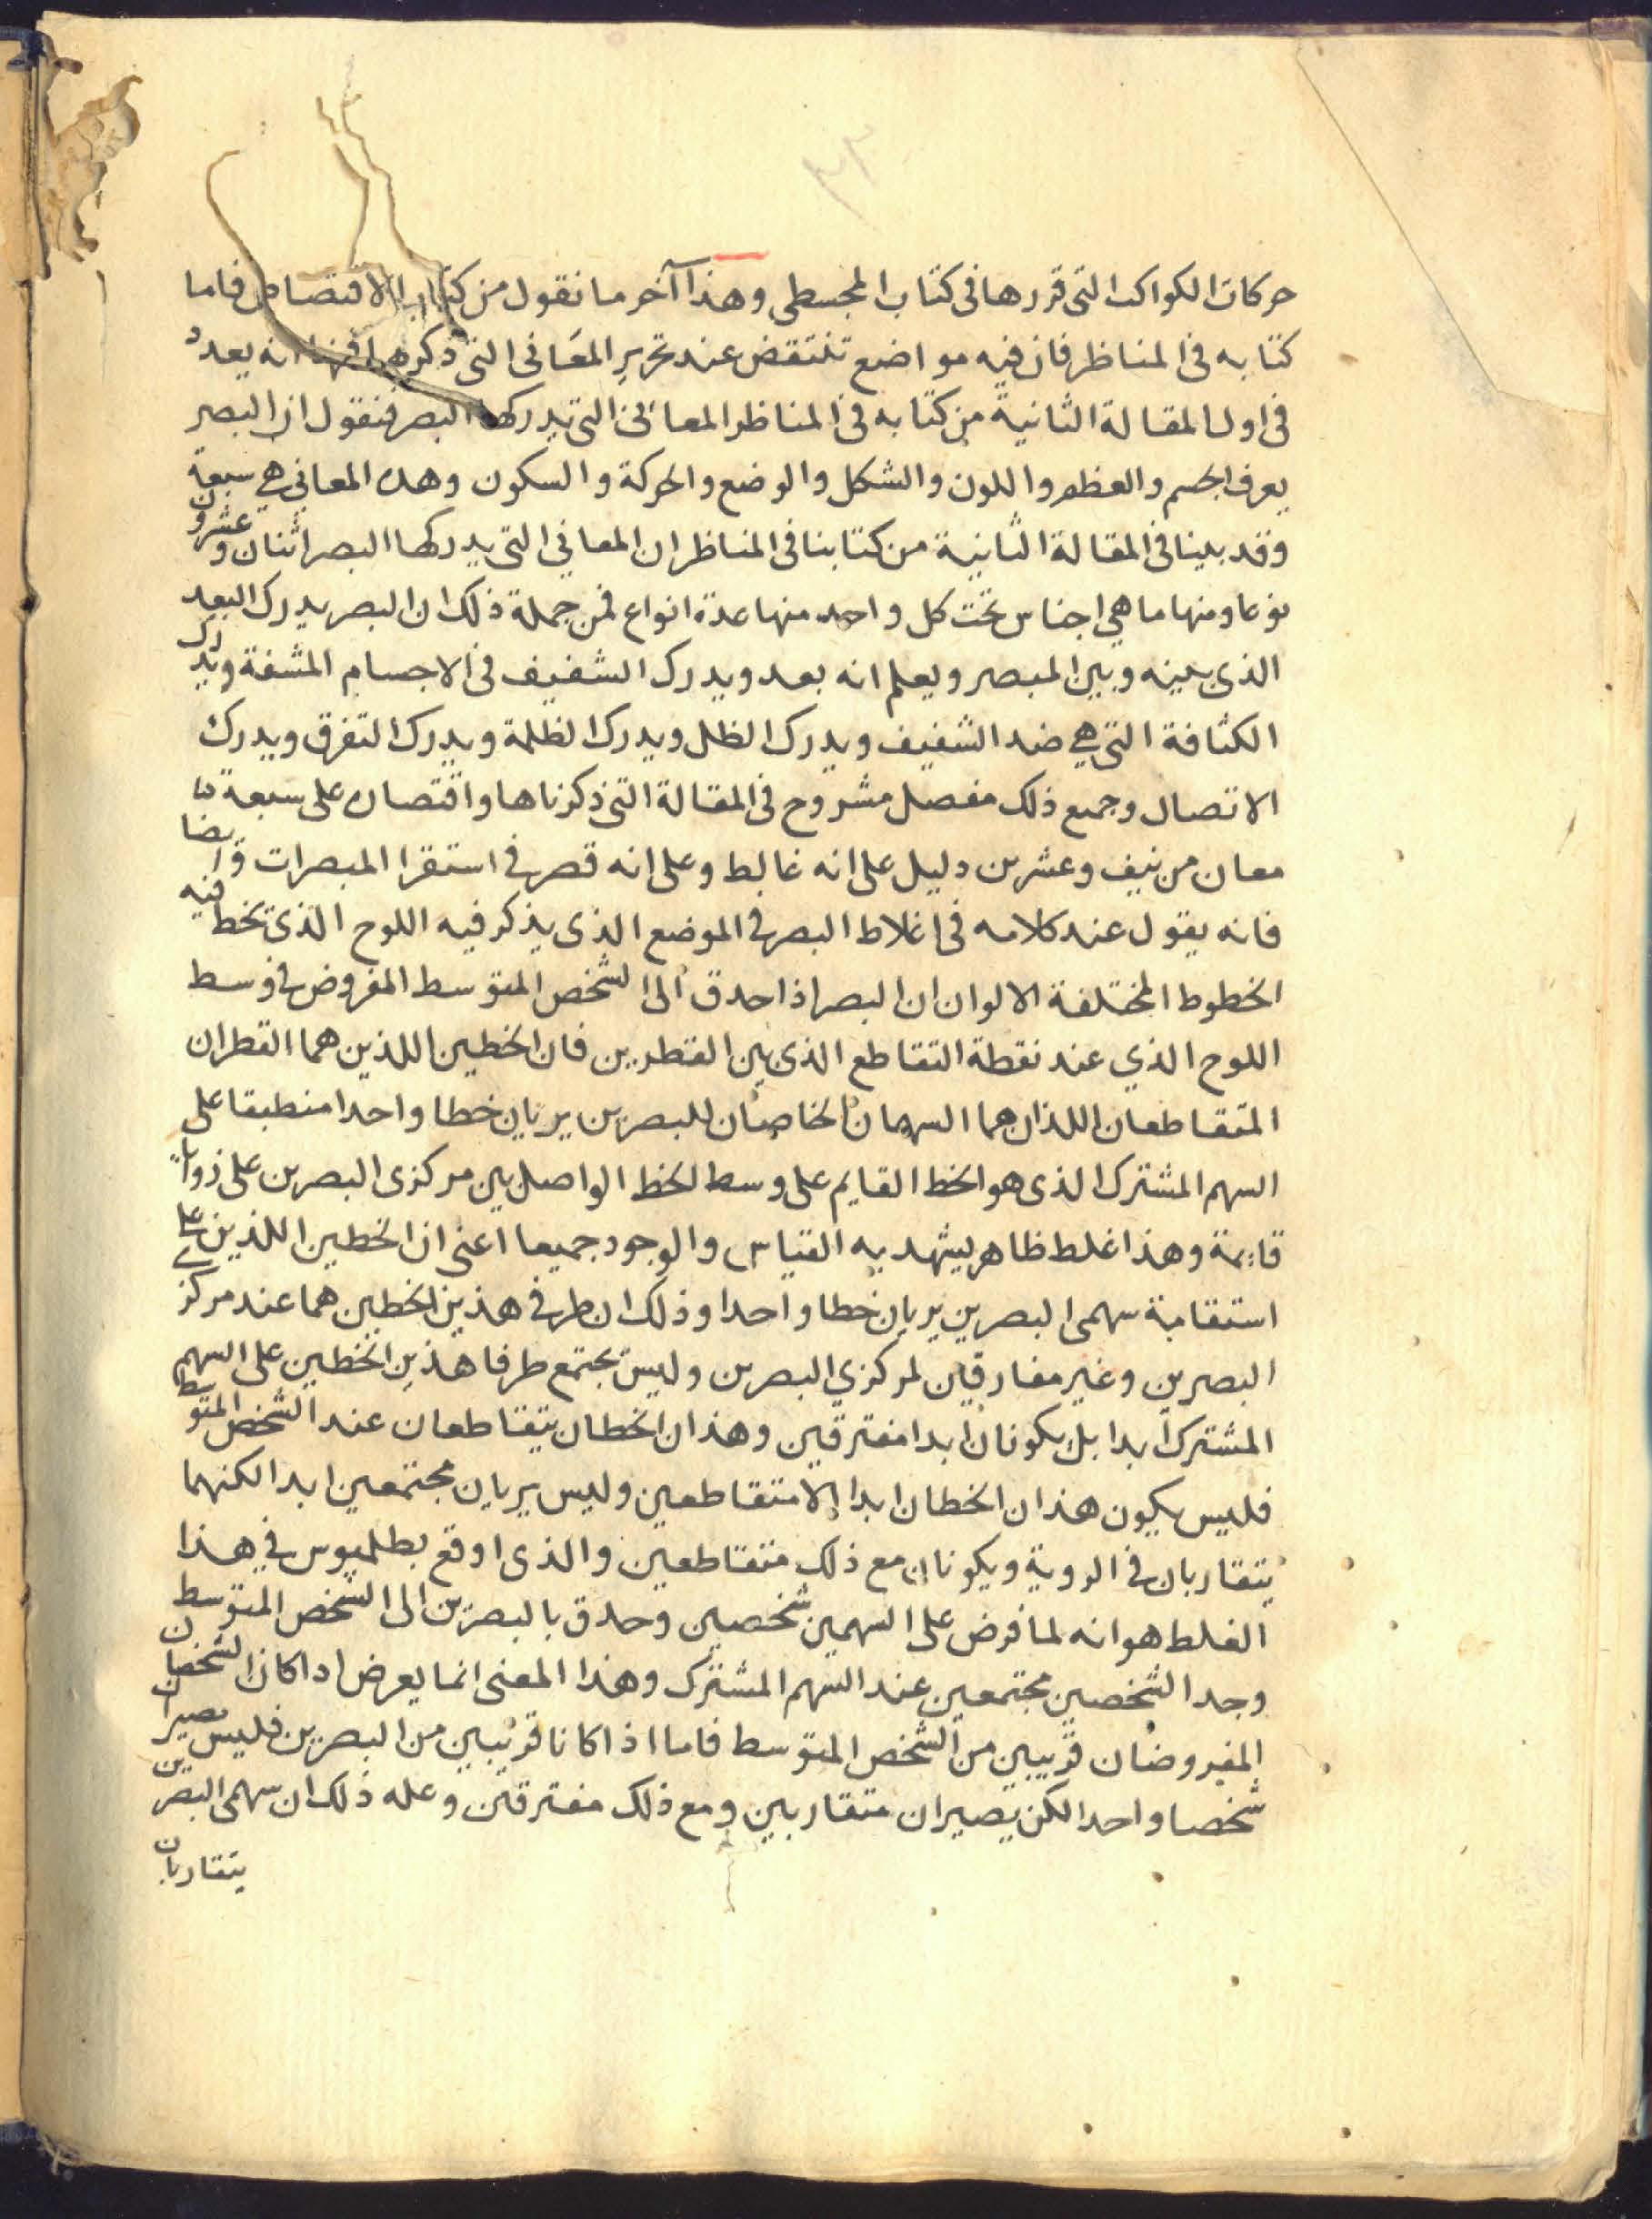 حركات الكواكب التى قررها فى كتاب المجسطى وهذا آخر ما نقول من كتاب الاقتصاص فاما
كتابه فى المناظر فان فيه مواضع تنتقض عند تحرير المعانى التى ذكرها فمنها انه يعدد
فى اول المقالة الثانية من كتابه فى المناظر المعانى التى تدركها البصر فنقول ان البصر
يعرف الجسم والعظم واللون والشكل والوضع والحركة والسكون وهذه المعاني هي سبعة
وقد بينا فى المقالة الثانية من كتابنا فى المناظر ان المعاني التى يدركها البصر اثنان وعشرون
نوعا ومنها ما هي اجناس تحت كل واحد منها عدة انواع فمن جملة ذلك ان البصر يدرك البعد
الذى بينه وبين المبصر ويعلم انه بعد ويدرك الشفيف فى الاجسام المشفة ويدرك
الكثافة التى هي ضد الشفيف ويدرك الظل ويدرك الظلمة ويدرك التفرق ويدرك
الاتصال وجميع ذلك مفصل مشروح فى المقالة التى ذكرناها واقتصاره على سبعة
معان من نيف وعشرين دليل على انه غالط وعلى انه قصر فى استقرا المبصرات وايضا
فانه يقول عند كلامه فى اغلاط البصر فى الموضع الذى يذكر فيه اللوح الذى تخط فيه
الخطوط المختلفة الالوان ان البصر اذا حدق الى الشخص المتوسط المفروض فى وسط
اللوح الذي عند نقطة التقاطع الذى بين القطرين فان الخطين اللذين هما القطران
المتقاطعان اللذان هما السهمان الخاصان للبصرين يريان خطا واحدا منطبقا على
السهم المشترك الذى هو الخط القايم على وسط الخط الواصل بين مركزى البصرين على زوايا
قايمة وهذا غلط ظاهر يشهد به القياس والوجود جميعا اعنى ان الخطين اللذين على
استقامة سهمى البصرين يريان خطا واحدا وذلك ان طرفي هذين الخطين هما عند مركز
البصرين وغير مفارقين لمركزي البصرين وليس يجتمع طرفا هذين الخطين على السهم
المشترك ابدا بل يكونان ابدا مفترقين وهذان الخطان يتقاطعان عند الشخص المتوسط
فليس يكون هذان الخطان ابدا الا متقاطعين وليس يريان مجتمعين ابدا لكنهما
يتقاربان فى الروية ويكونان مع ذلك متقاطعين والذى اوقع بطلميوس فى هذا
الغلط هو انه لما فرض على السهمين شخصين وحدق بالبصرين الى الشخص المتوسط
وجد الشخصين مجتمعين عند السهم المشترك وهذا المعنى انما يعرض اذا كان الشخصان
المفروضان قريبين من الشخص المتوسط فاما اذا كانا قريبين من البصرين فليس يصيران
شخصا واحدا لكن يصيران متقاربين ومع ذلك مفترقين وعله ذلك ان سهمى البصرين
يتقاربان